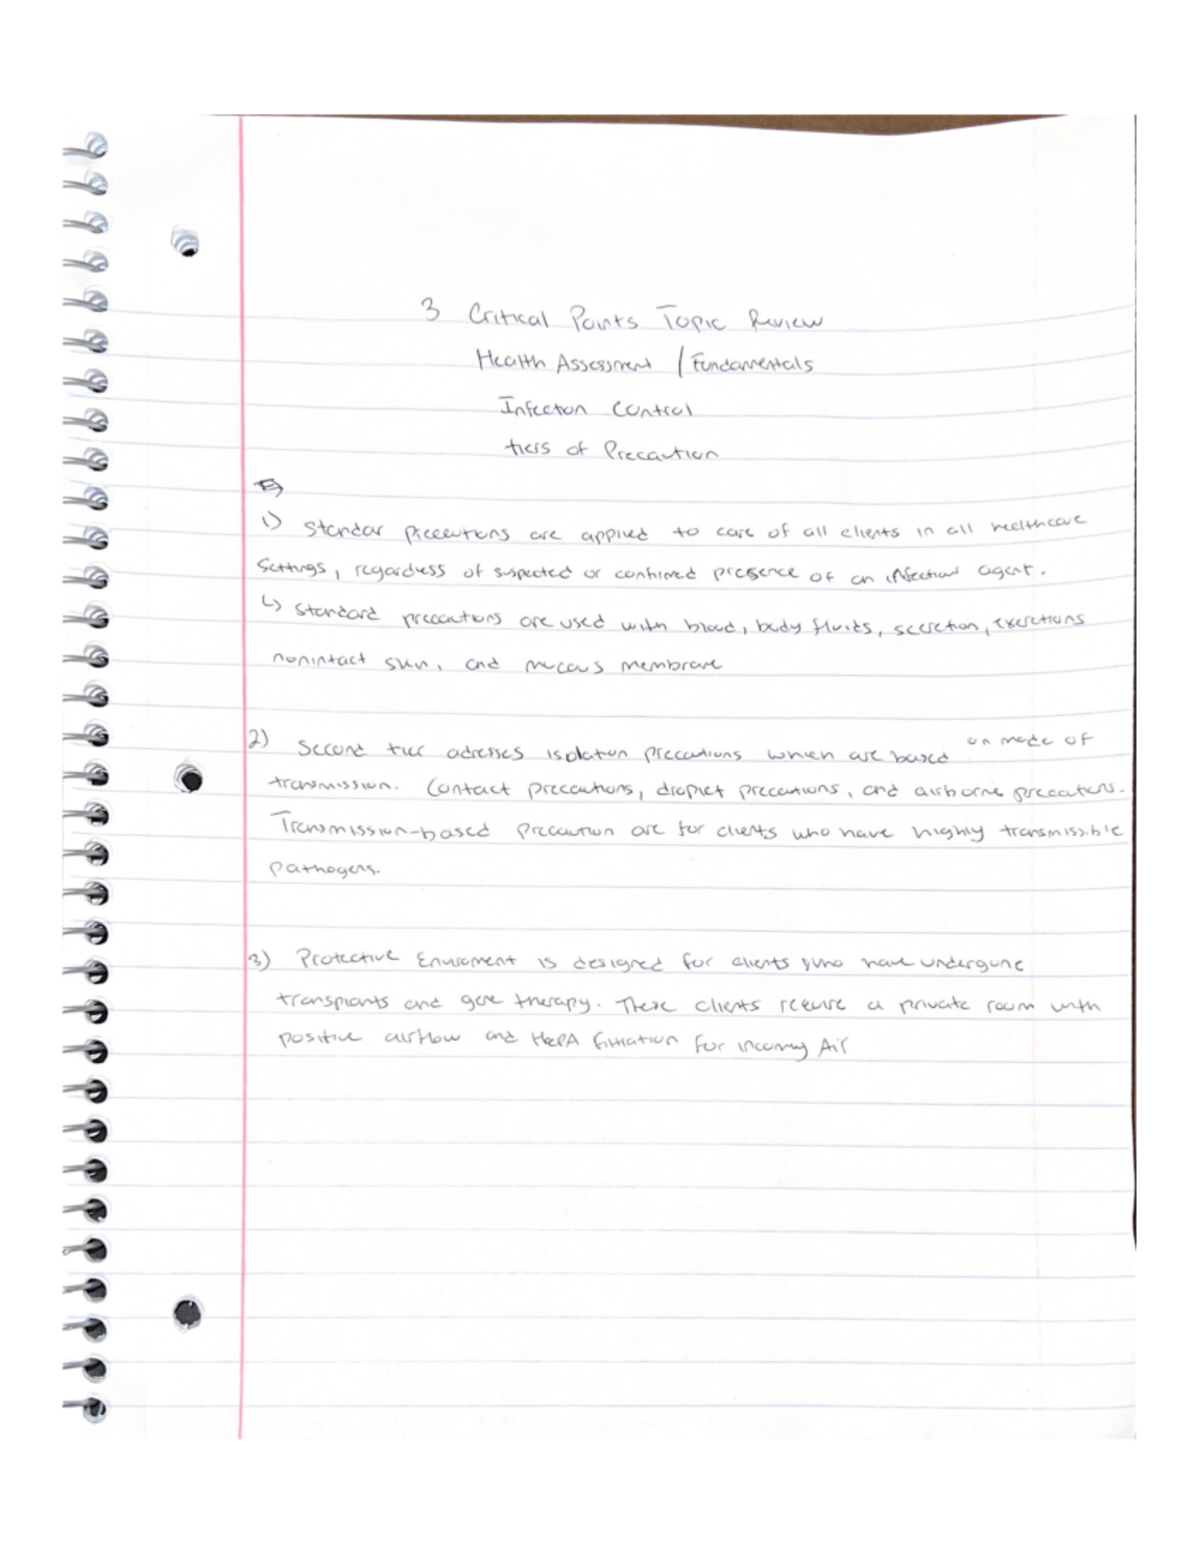 3 Critical Points Topic Review
Health Assessment / Fundamentals
Infection Control
tiers of Precaution
1) Standar precautions are applied to care of all clients in all healthcare
Settings, regardless of suspected or confirmed presence of an infectious agent.
↳ Standard precautions are used with blood, body fluids, secretion, excretions
nonintact skin, and mucous membrane
2) Second tier adresses isolation precautions which are based on mode of
transmission. Contact precautions, droplet precautions, and airborne precautions.
Transmission-based precaution are for clients who have highly transmissible
pathogens.
3) Protective Enviroment is designed for clients who have undergone
transplants and gene therapy. These clients require a private room with
positive airflow and HEPA filtration for incoming Air